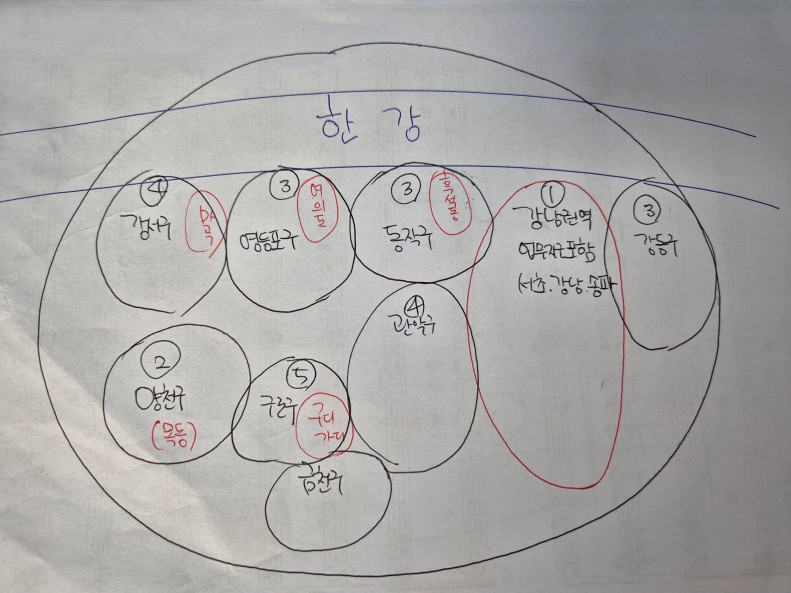 한강
④
강서구
마곡
③
영등포구
여의도
③
동작구
흑석동
①
강남권역
업무지구포함
서초.강남.송파
③
강동구
②
양천구
(목동)
⑤
구로구
구디
가디
④
관악구
금천구